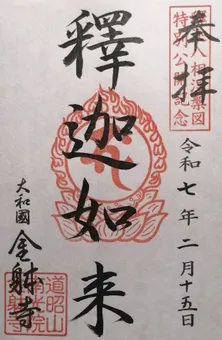 奉拝
特別公開記念
令和七年二月十五日
釋迦如来
大和國
金躰寺
道昭山